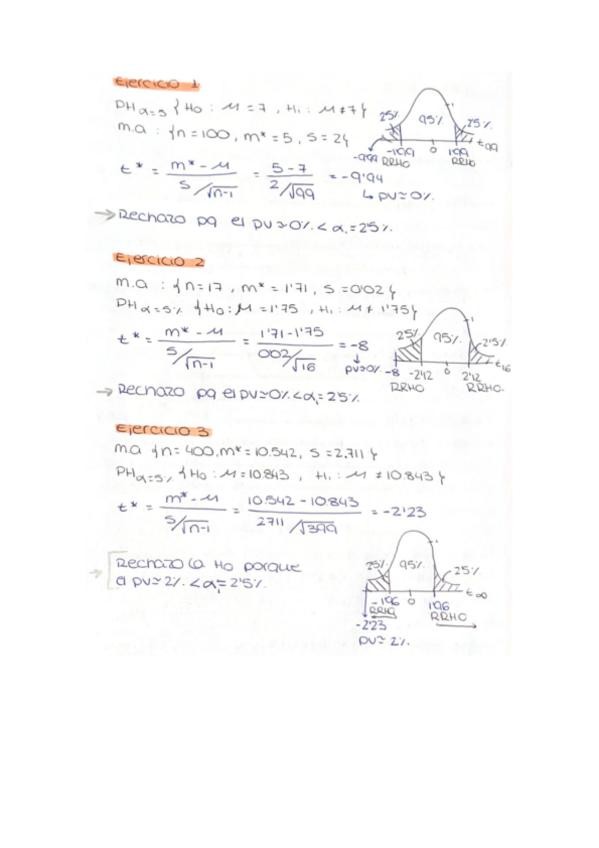 Ejercicio 1
PHα=5 {H0 : M = 7, H1 : M ≠ 7}
m.a : {n=100, m* = 5, S = 2}
t* = m* - M / S/√n-1 = 5-7 / 2/√99 = -9'94
↳ pv ≃ 0%
25% 95% 25%
-1'99 0 1'99 t99
RRHO RRHO
→ Rechazo pq el pv≃0% < α1 = 2'5%
Ejercicio 2
m.a : {n=17, m* = 1'71, S = 0'02}
PHα=5% {H0 : M = 1'75, H1 : M ≠ 1'75}
t* = m* - M / S/√n-1 = 1'71-1'75 / 002/√16 = -8
pv≃0%
25% 95% 2'5%
-8 -2'12 0 2'12 t16
RRHO RRHO
→ Rechazo pq el pv≃0% < α1 = 2'5%
Ejercicio 3
m.a {n = 400, m* = 10.542, S = 2.711}
PHα=5% {H0 : M = 10.843, H1 : M ≠ 10.843}
t* = m* - M / S/√n-1 = 10.542 - 10.843 / 2711/√399 = -2'23
→ Rechazo la H0 porque
el pv≃2% < α1 = 2'5%
25% 95% 25%
-1'96 0 1'96 t∞
RRHO RRHO
-2'23
pv≃ 2%